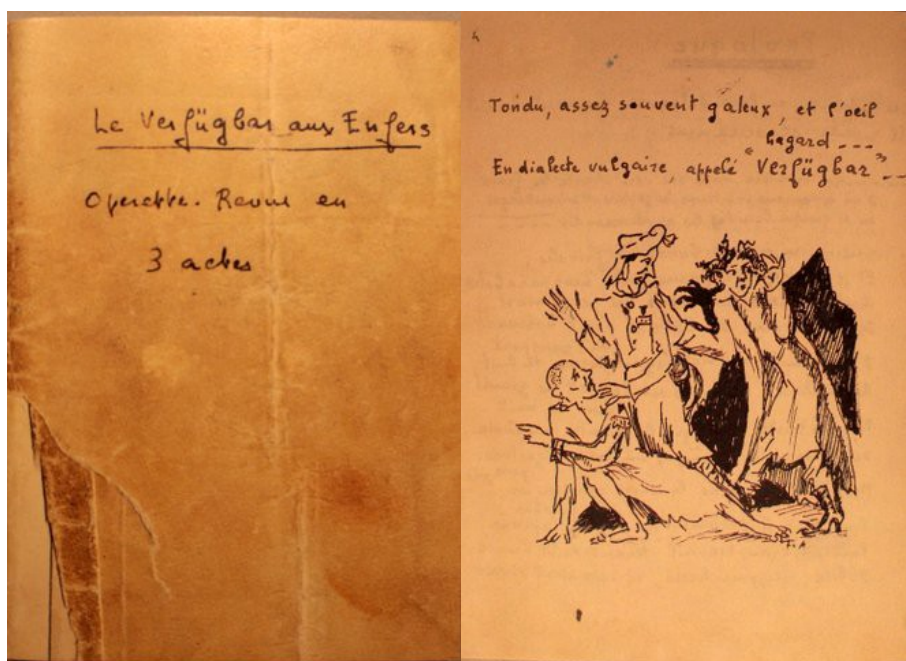 Le Verfügbar aux Enfers
Opérette. Revue en
3 actes
Tondu, assez souvent galeux, et l'oeil
hagard ---
En dialecte vulgaire, appelé "Verfügbar" --